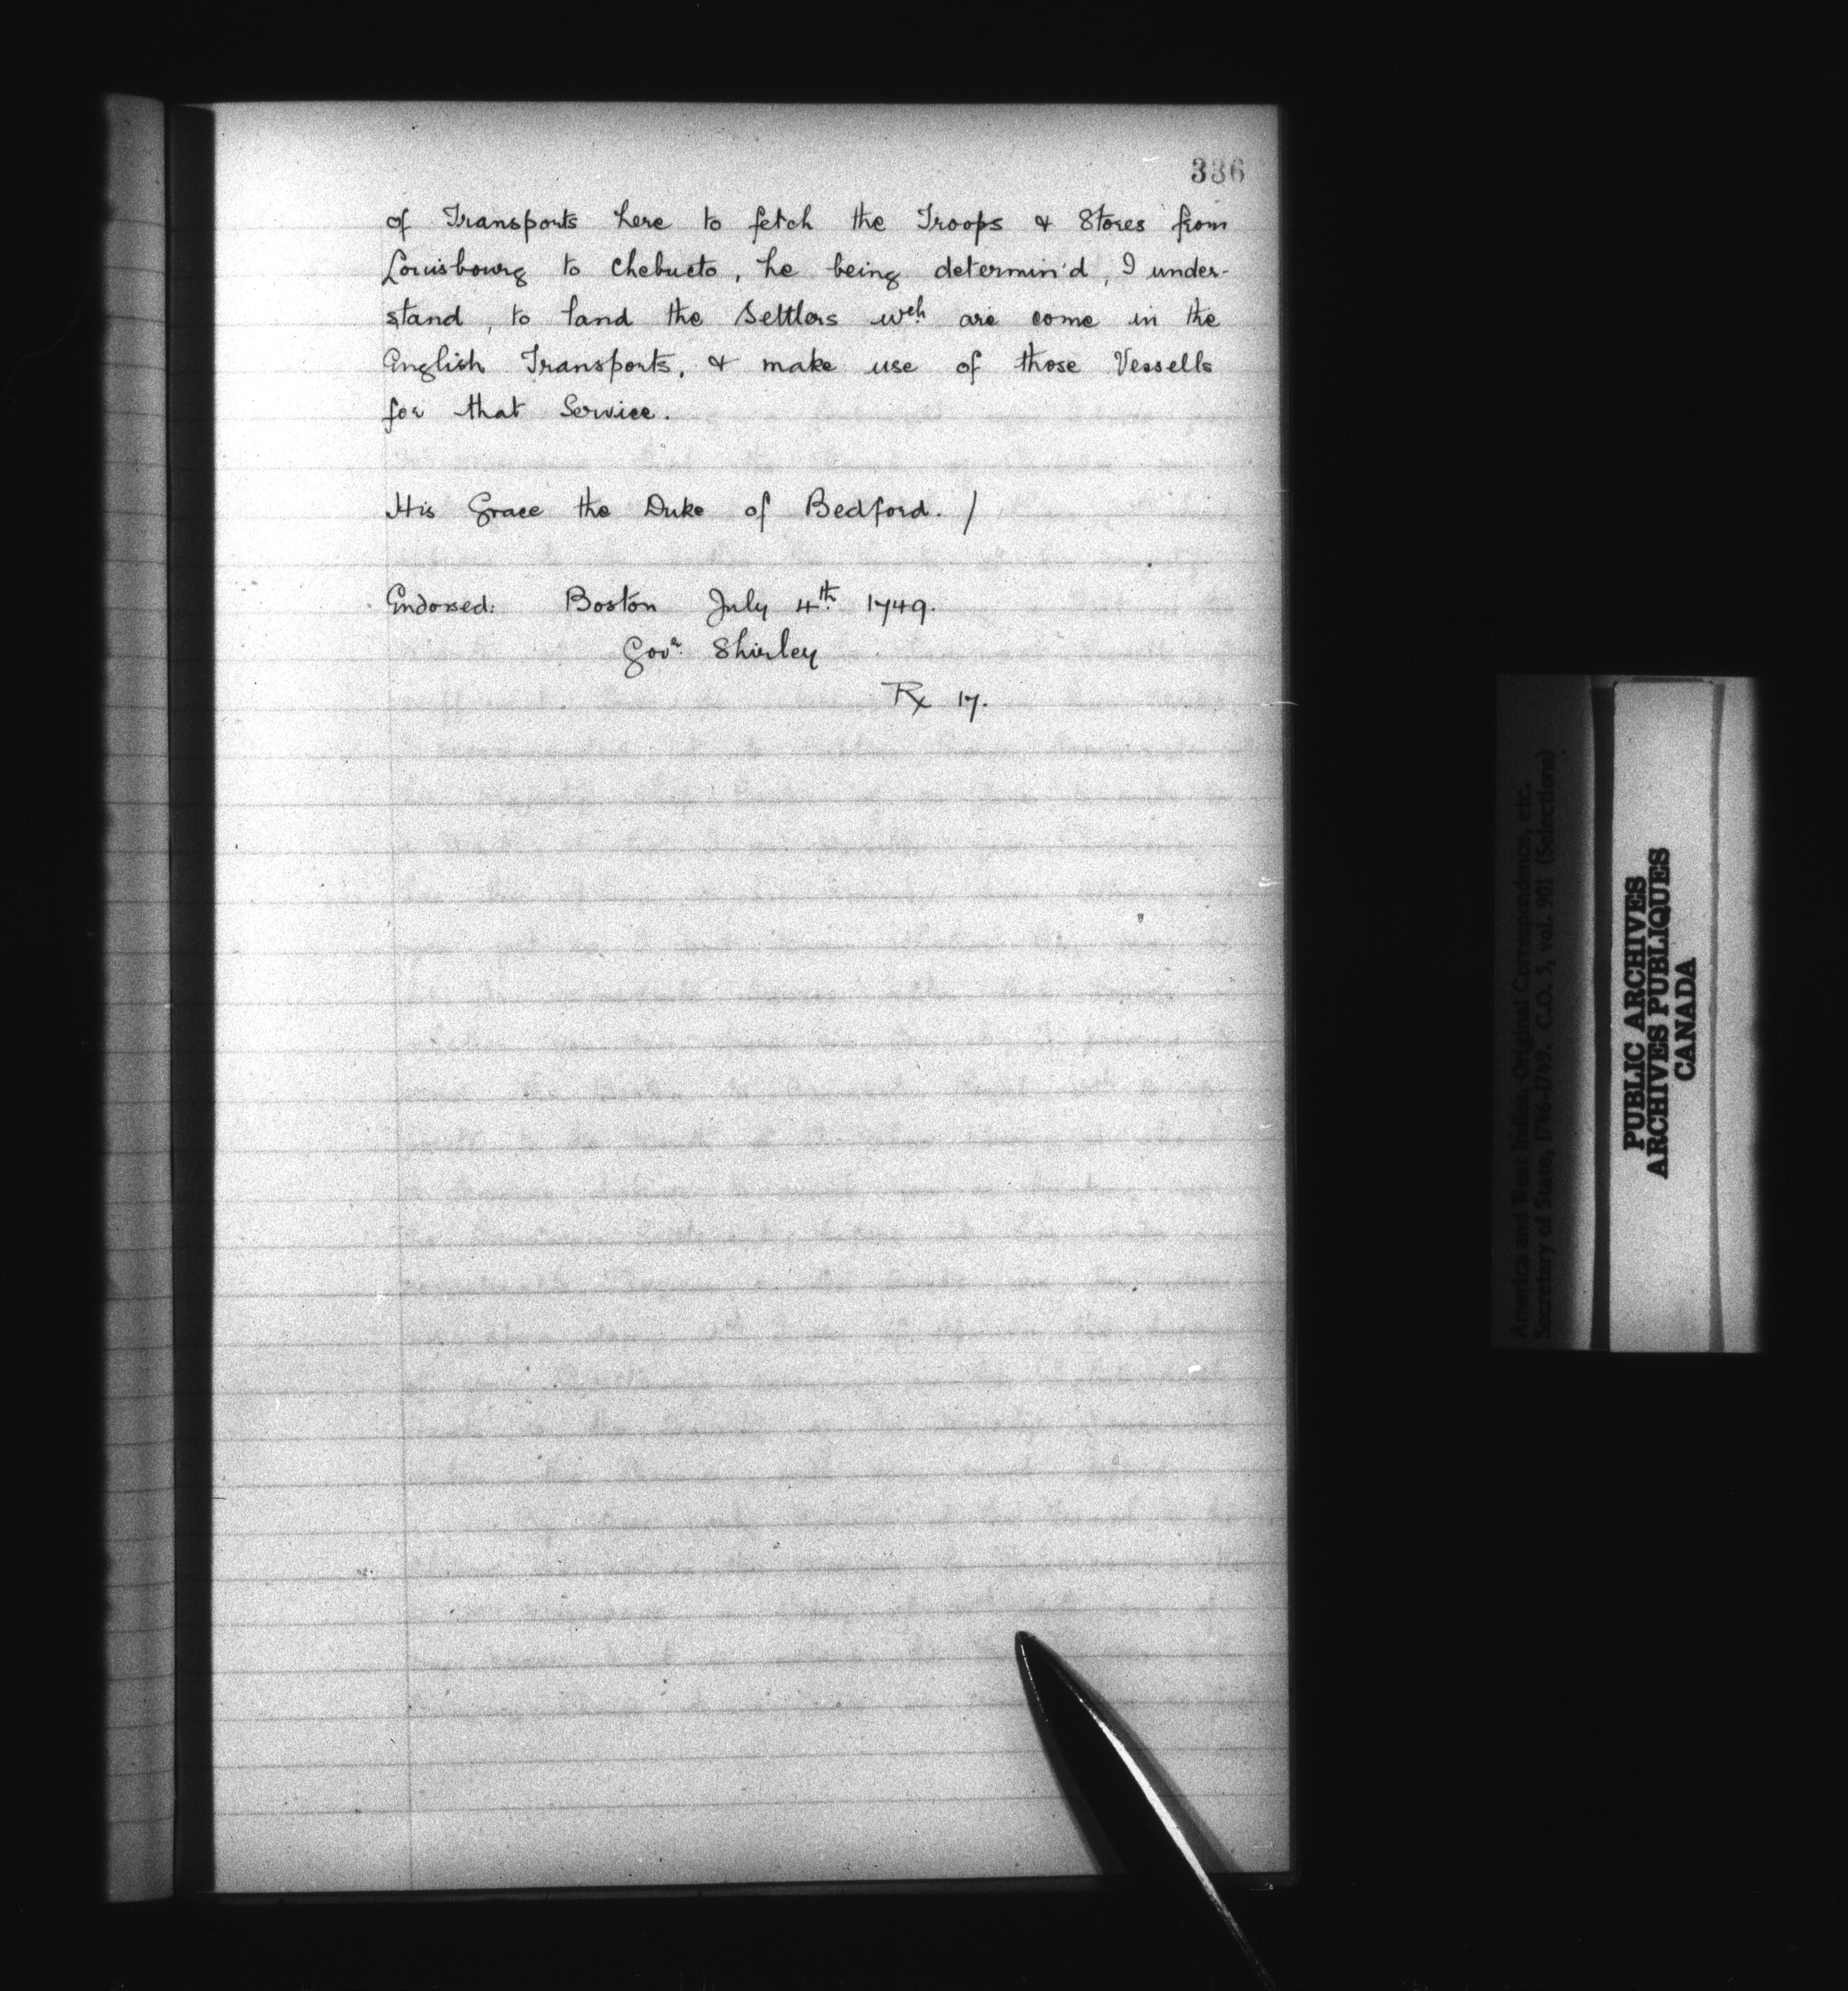 336
of Transports here to fetch the Troops & Stores from
Louisbourg to Chebucto, he being determin'd, I under-
stand, to land the Settlers wch are come in the
English Transports, & make use of those Vessells
for that Service.
His Grace the Duke of Bedford. /
Endorsed: Boston July 4th 1749.
Govr. Shirley
Rx 17.
America and West Indies, Original Correspondence, etc.
Secretary of State, 1746-1749. C.O. 5, vol. 901 (Selections)
PUBLIC ARCHIVES
ARCHIVES PUBLIQUES
CANADA